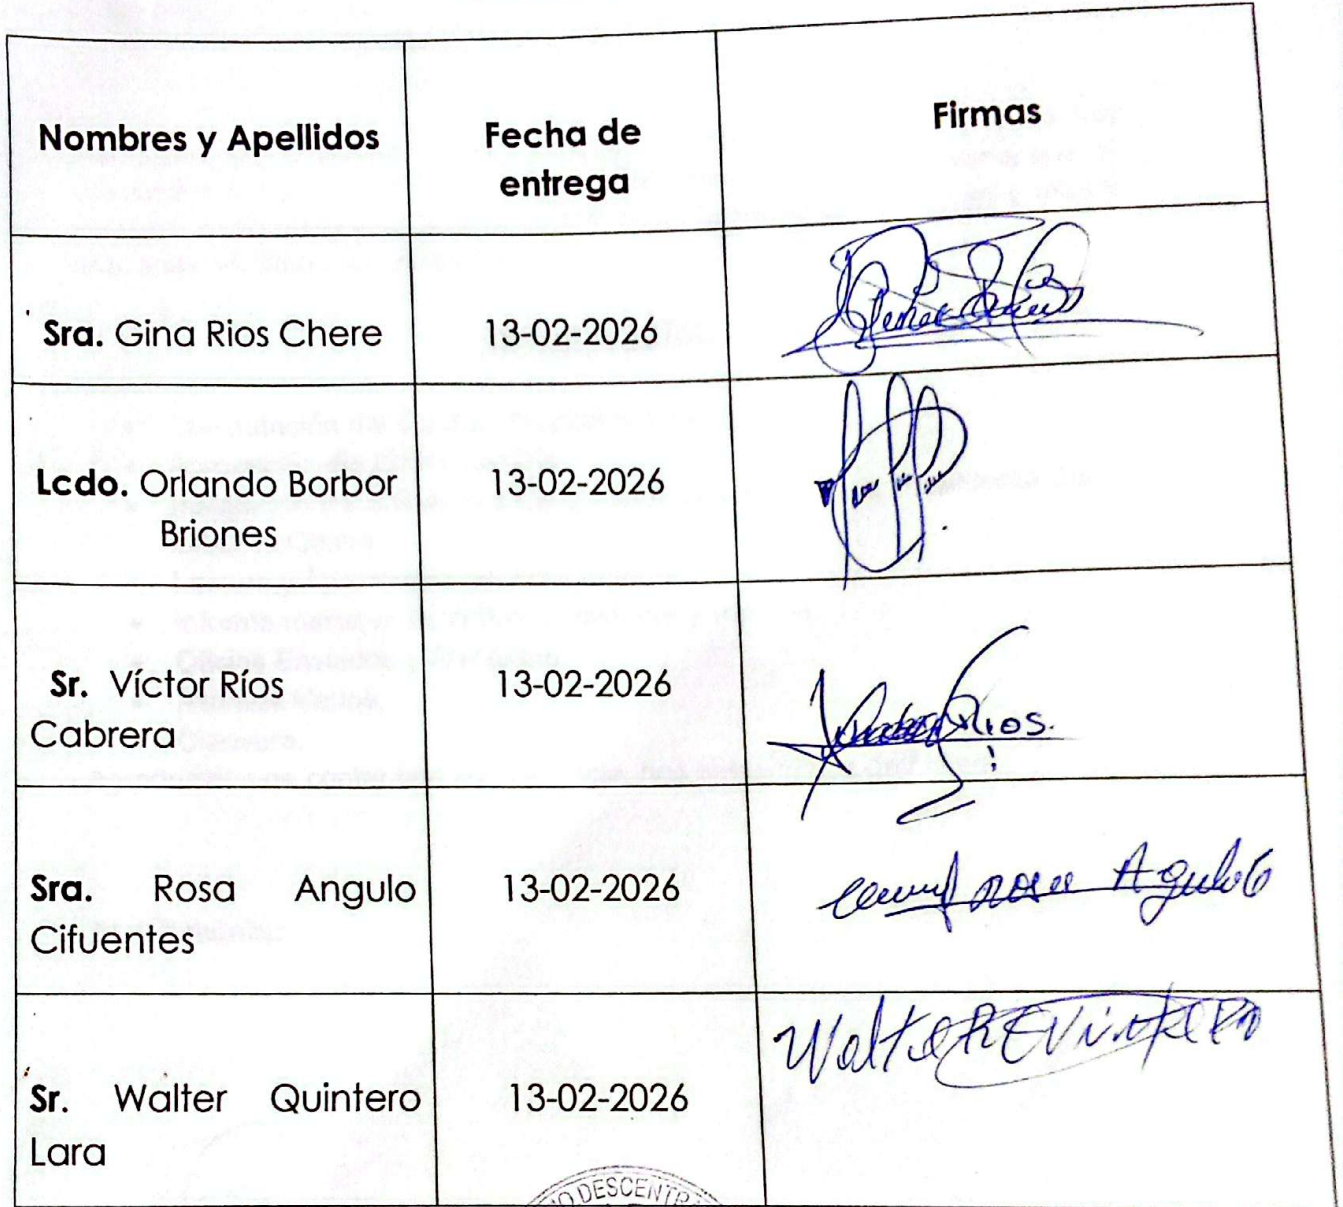 Nombres y Apellidos
Fecha de
entrega
Firmas
Sra. Gina Rios Chere
13-02-2026
Lcdo. Orlando Borbor
Briones
13-02-2026
Sr. Víctor Ríos
Cabrera
13-02-2026
Rios.
Sra. Rosa Angulo
Cifuentes
13-02-2026
rosa Agulo
Sr. Walter Quintero
Lara
13-02-2026
Walter
DESCENTR